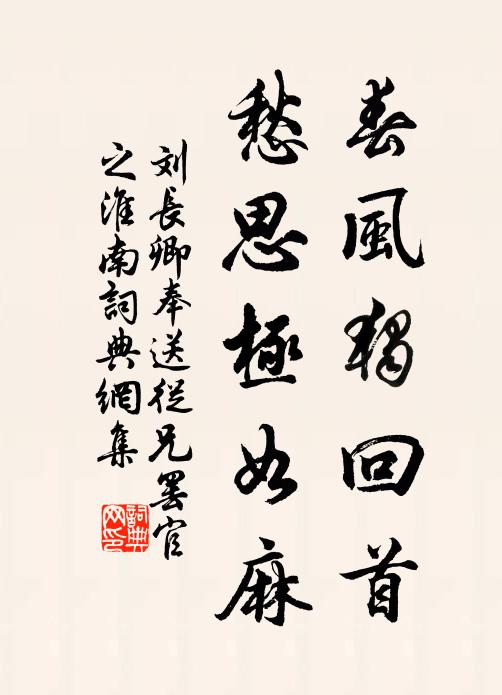 春風獨回首
愁思極如麻
刘長卿奉送從兄罢官
之淮南詞典網集
詞典
网印